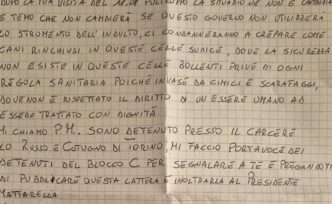 DOPO LA TUA VISITA DEL
E TEMO CHE NON CAMBIERÀ SE QUESTO GOVERNO NON UTILIZZERÀ
LO STRUMENTO DELL'INDULTO, CI CONDANNERANNO A CREPARE COME
CANI RINCHIUSI IN QUESTE CELLE SUDICE, DOVE LA SICUREZZA
NON ESISTE IN QUESTE CELLE BOLLENTI PRIVE DI OGNI
REGOLA SANITARIA POICHÈ INVASE DA CIMICI E SCARAFAGGI,
DOVE NON È RISPETTATO IL DIRITTO DI UN ESSERE UMANO AD
ESSERE TRATTATO CON DIGNITÀ
MI CHIAMO P.M. SONO DETENUTO PRESSO IL CARCERE
LO RUSSO E COTUGNO DI TORINO, MI FACCIO PORTAVOCE DEI
DETENUTI DEL BLOCCO C PER SEGNALARE A TE E PREGANDOTI
DI PUBBLICARE QUESTA LATTERA E INOLTRARLA AL PRESIDENTE
MATTARELLA